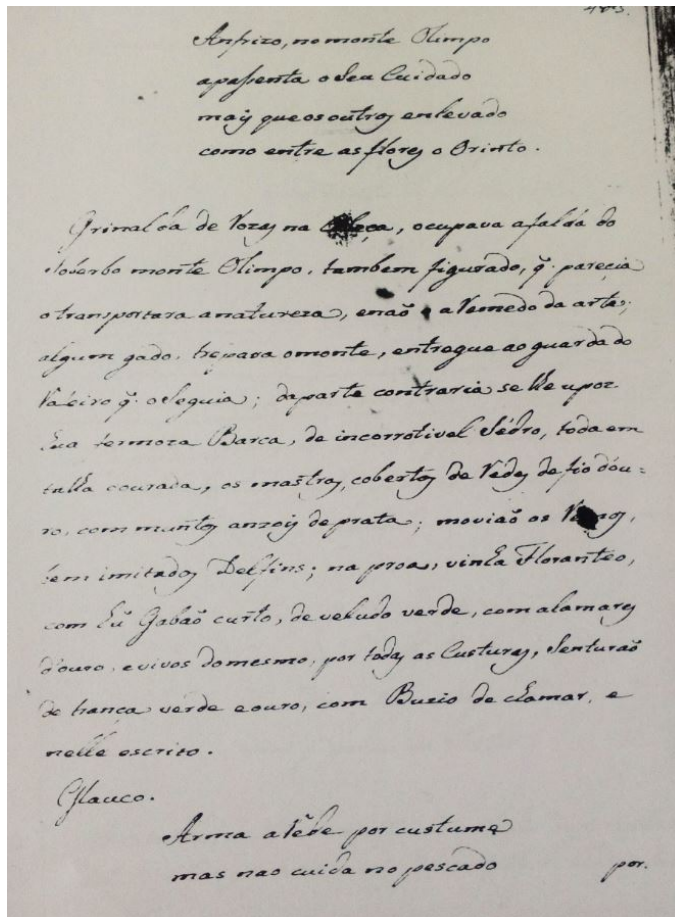 Anfrizo, no monte Olimpo
apaßenta o seu Cuidado
mais que os outros enlevado
como entre as flores o Orinto.
Grinalda de Rozas na Cabeça, ocupava a falda do
soberbo monte Olimpo, tambem figurado, q̃ parecia
o transportara a natureza, e naõ a Remedo da arte;
algum gado, trepava o monte, entregue ao guarda do
Rafeiro q̃ o seguia; da parte contraria se lhe upoz
hua fermoza Barca, de incorrotivel Sédro, toda em
talha dourada, os mastros, cobertos de Redes de fio dóu=
ro, com muntos anzois de prata; moviaõ os Remos,
bem imitados Delfins; na proa, vinha Floranteo,
com hũ Gabaõ curto, de veludo verde, com alamares
d'ouro, e vivos do mesmo, por todas as Custuras, Senturaõ
de trança verde e ouro, com Buzio de chamar, e
nelle escrito.
Glauco.
Arma a rêde por custume
mas nao cuida no pescado
por.